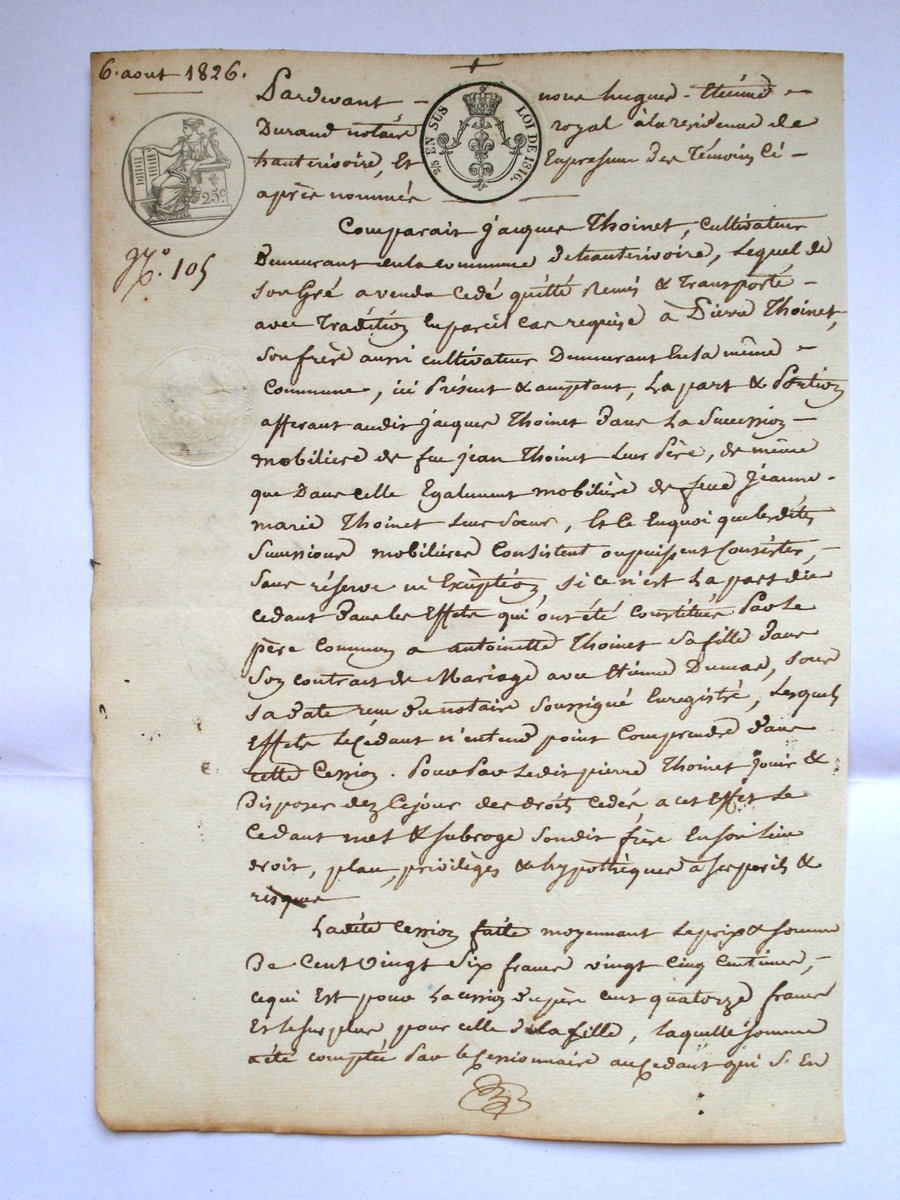 6. aout 1826.
Pardevant - nous hugues - Etienne -
Durand notaire royal à la residence de
hauterivoire, Et En presence des Témoins Ci -
après nommés
2/5 EN SUS LOI DE 1816.
25c.
No. 105
Comparait jacques Thoinet, cultivateur
Demeurant en la commune de hauterivoire, Lequel de
son Gré a vendu cedé quitté Remis & Transporté -
avec Tradition En pareil cas requise à Pierre Thoinet,
son frère aussi cultivateur Demeurant En la même -
Commune, ici Présent & acceptant, La part & Portion
afferant audit jacques Thoinet Dans La Succession -
mobilière de feu jean Thoinet Leur Père, de même
que Dans celle Egalement mobilière de feue jeanne -
marie Thoinet Leur Sœur, Et Ce Enquoi que lesdites
Successions mobilières Consistent ou puissent Consister, -
Sans réserve ni Exception, si ce n'est La part du
cedant Dans les Effets qui ont été constitués Par Le
père Commun a antoinette Thoinet sa fille Dans
Son contrat de Mariage avec Etienne Dumas, sous
sa Date reçu Du notaire soussigné Enregistré, Lesquels
Effets Le Cedant n'entend point Comprendre Dans
cette Cession. Pour Par Ledit pierre Thoinet Jouir &
Disposer dez Cejour des droits cedés, a cet Effet Le
Cedant met & subroge Sondit frère En son lieu
droit, place, privilèges & hypothèques à ses perils &
risques
Ladite Cession faite moyennant Le prix & somme
De Cent Vingt Six francs vingt Cinq Centimes, -
ce qui Est pour La cession Du père cent quatorze francs
Et Le surplus pour celle de La fille, Laquelle somme
a été comptée Par le Cessionnaire au Cedant qui S'En